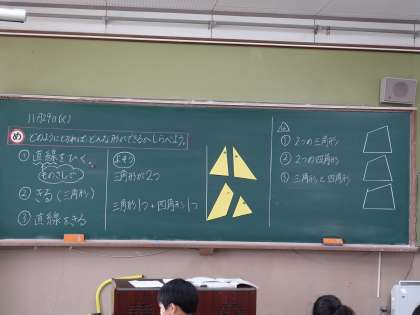 11月29日(火)
め
どのようにきれば、どんな形ができるかしらべよう。
① 直線をひく。
ものさしで
② きる(三角形)
③ 直線をきる
よそう
三角形が2つ
三角形1つ+四角形1つ
① 2つの三角形
② 2つの四角形
③ 三角形と四角形